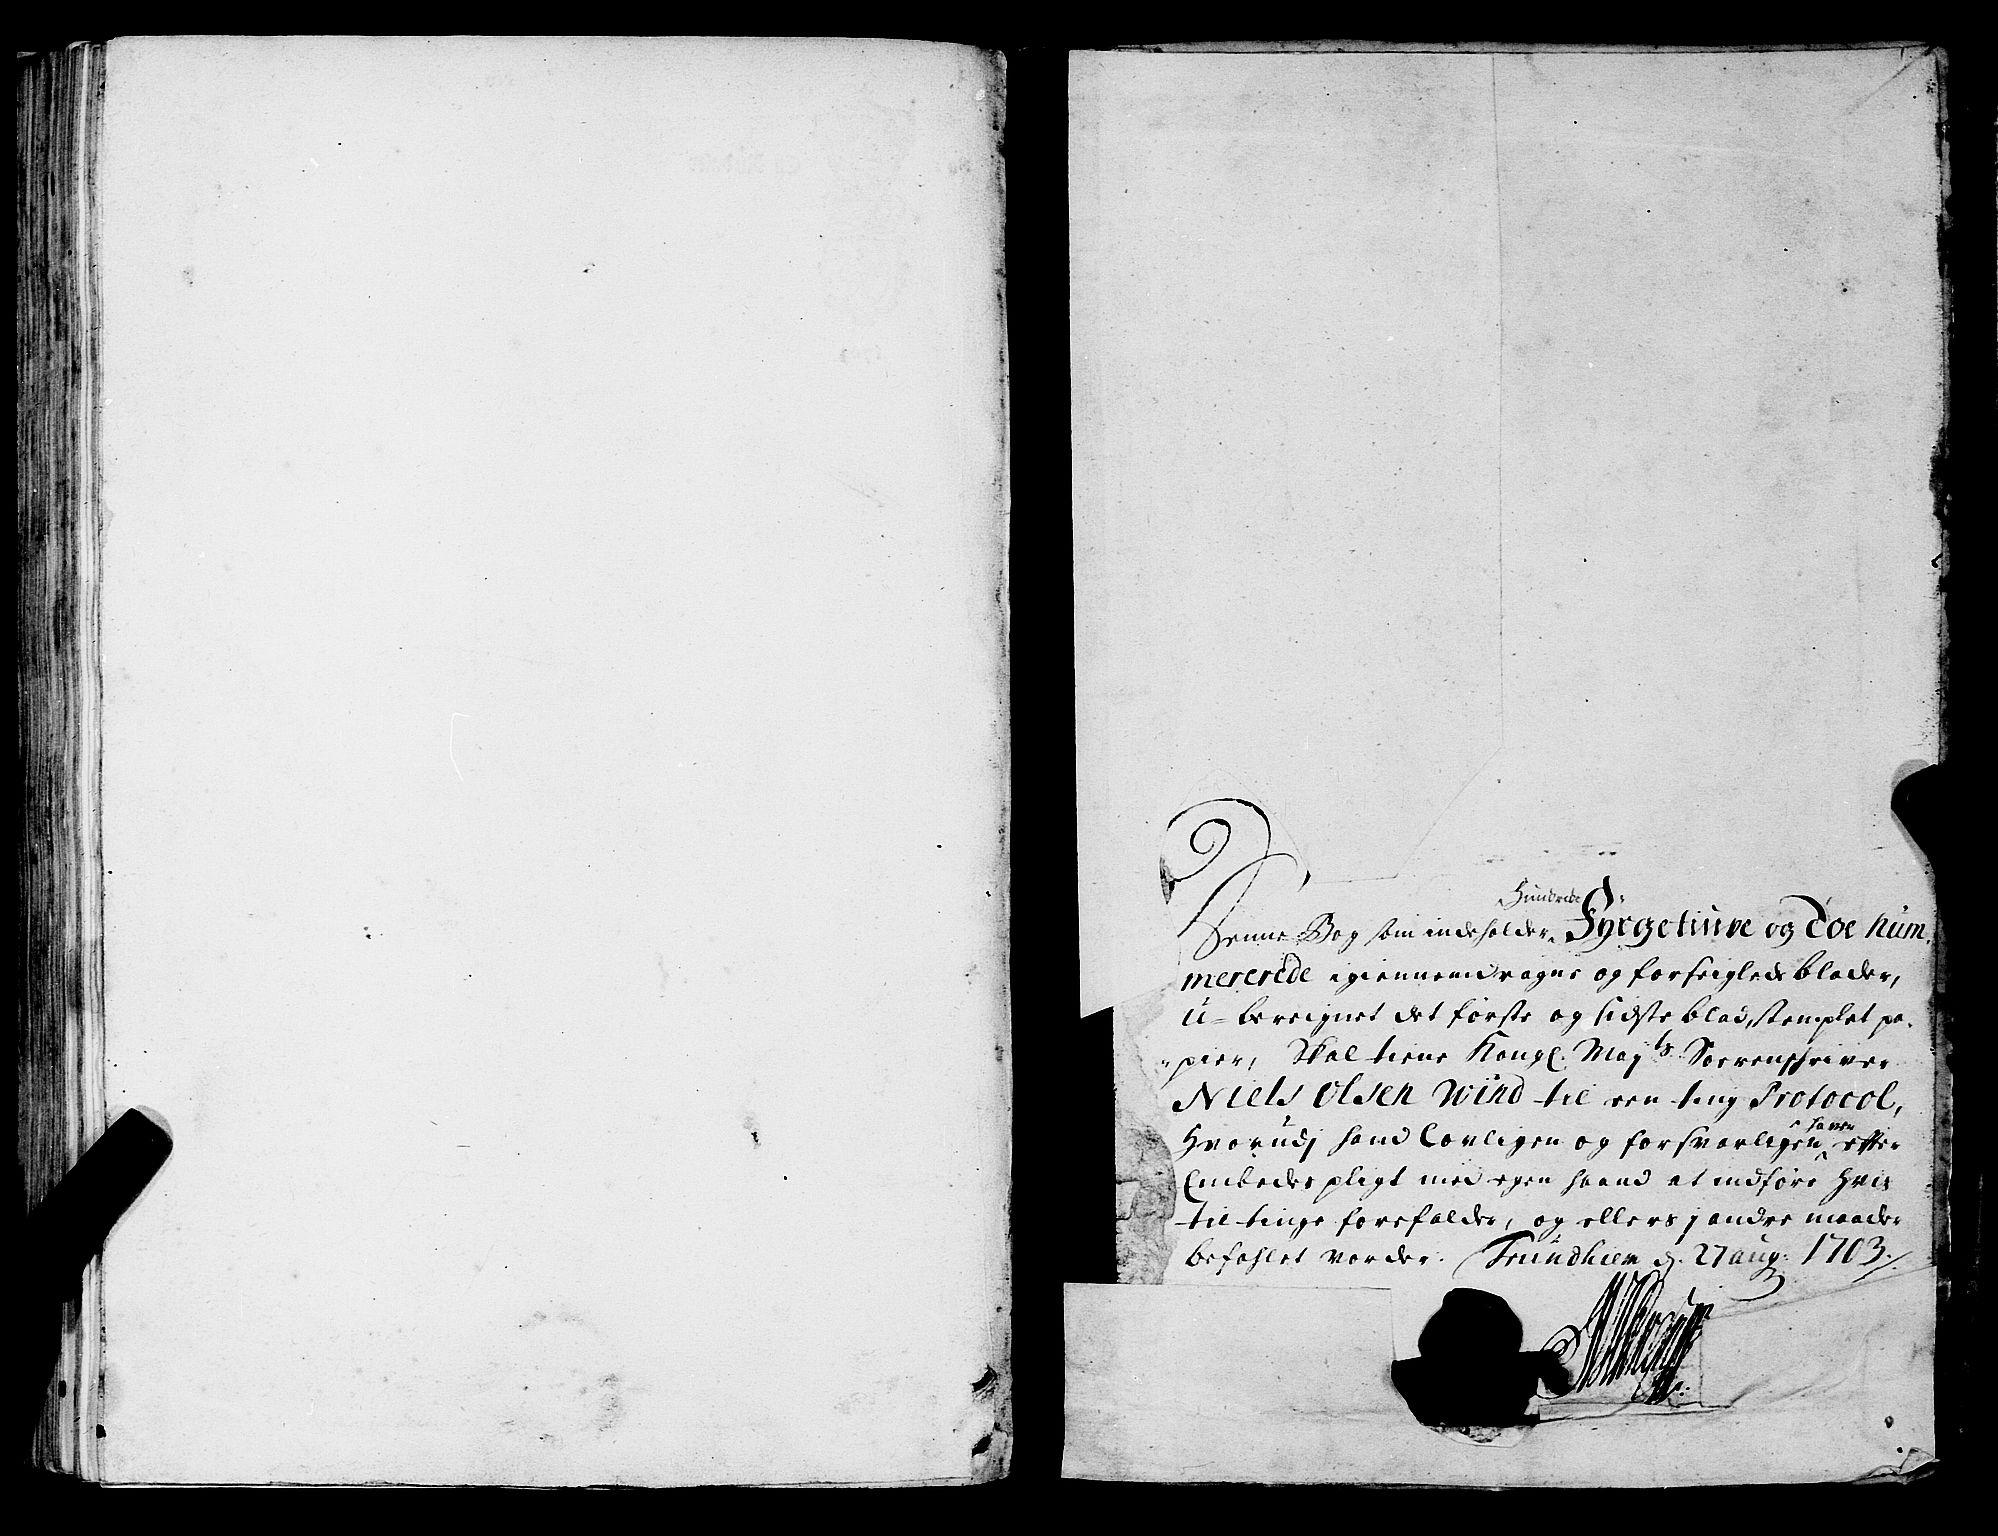 Hundrede
Denne Bog som indeholder Fyrgetiuve og Toe Num-
mererede igiennemdragne og forseiglede blader,
U-bereignet det første og sidste blad, stemplet pa-
-pier, Skal tiene Kongl: Mayts Sorrenschriver
Niels Olsen Wind til een ting Protocol,
Hvorudj hand Lovligen og forsvarligen haver efter
Embedes pligt med egen haand at indføre hvis
til tinge forefalder, og ellers j andre maader
befahlet vorder. Trundhiem d. 27 aug: 1703.